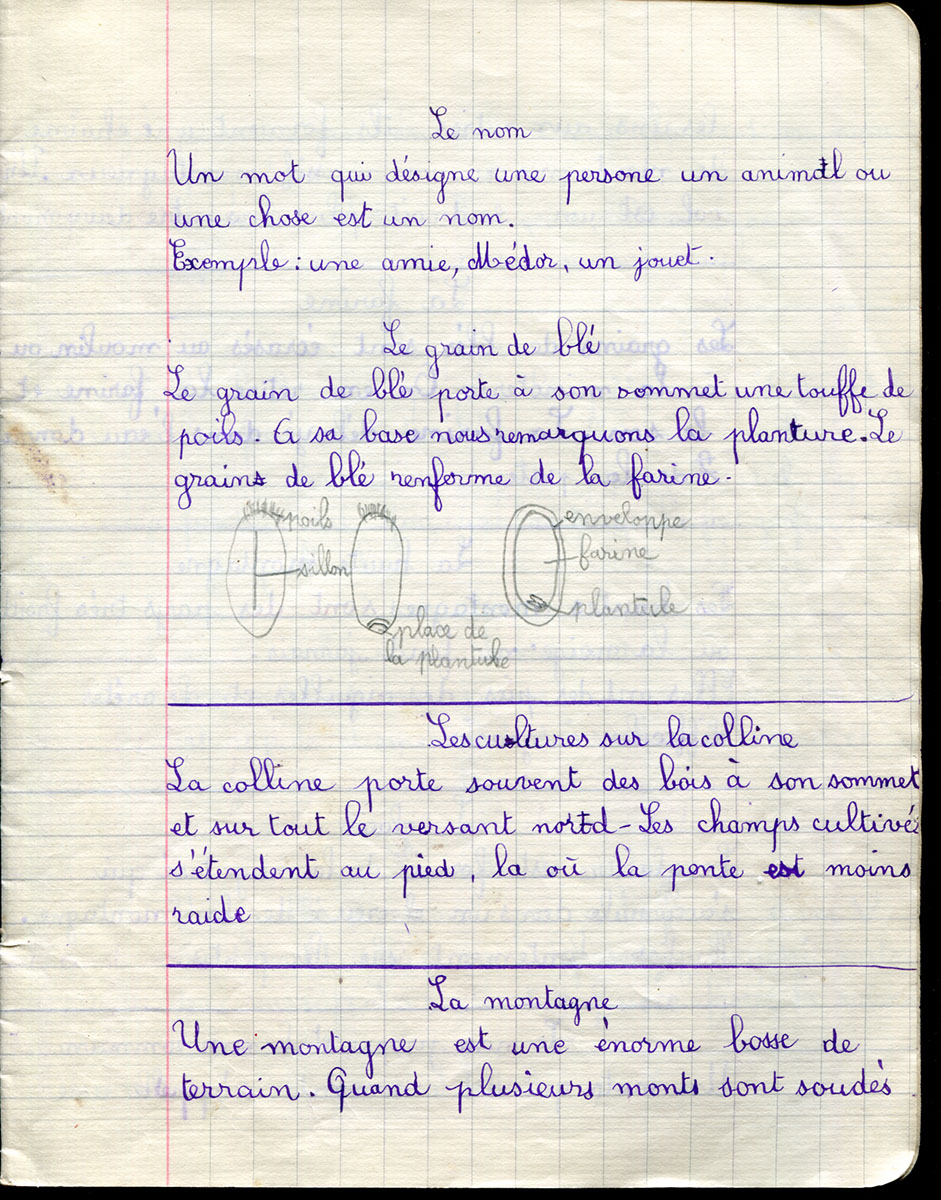 Le nom
Un mot qui désigne une persone un animal ou
une chose est un nom.
Exemple : une amie, Médor, un jouet.
Le grain de blé
Le grain de blé porte à son sommet une touffe de
poils. A sa base nous remarquons la planture. Le
grain de blé renferme de la farine.
poils
sillon
place de
la plantule
enveloppe
farine
plantule
Les cultures sur la colline
La colline porte souvent des bois à son sommet
et sur tout le versant nord - Les champs cultivés
s'étendent au pied, la où la pente est moins
raide
La montagne
Une montagne est une énorme bosse de
terrain. Quand plusieurs monts sont soudés